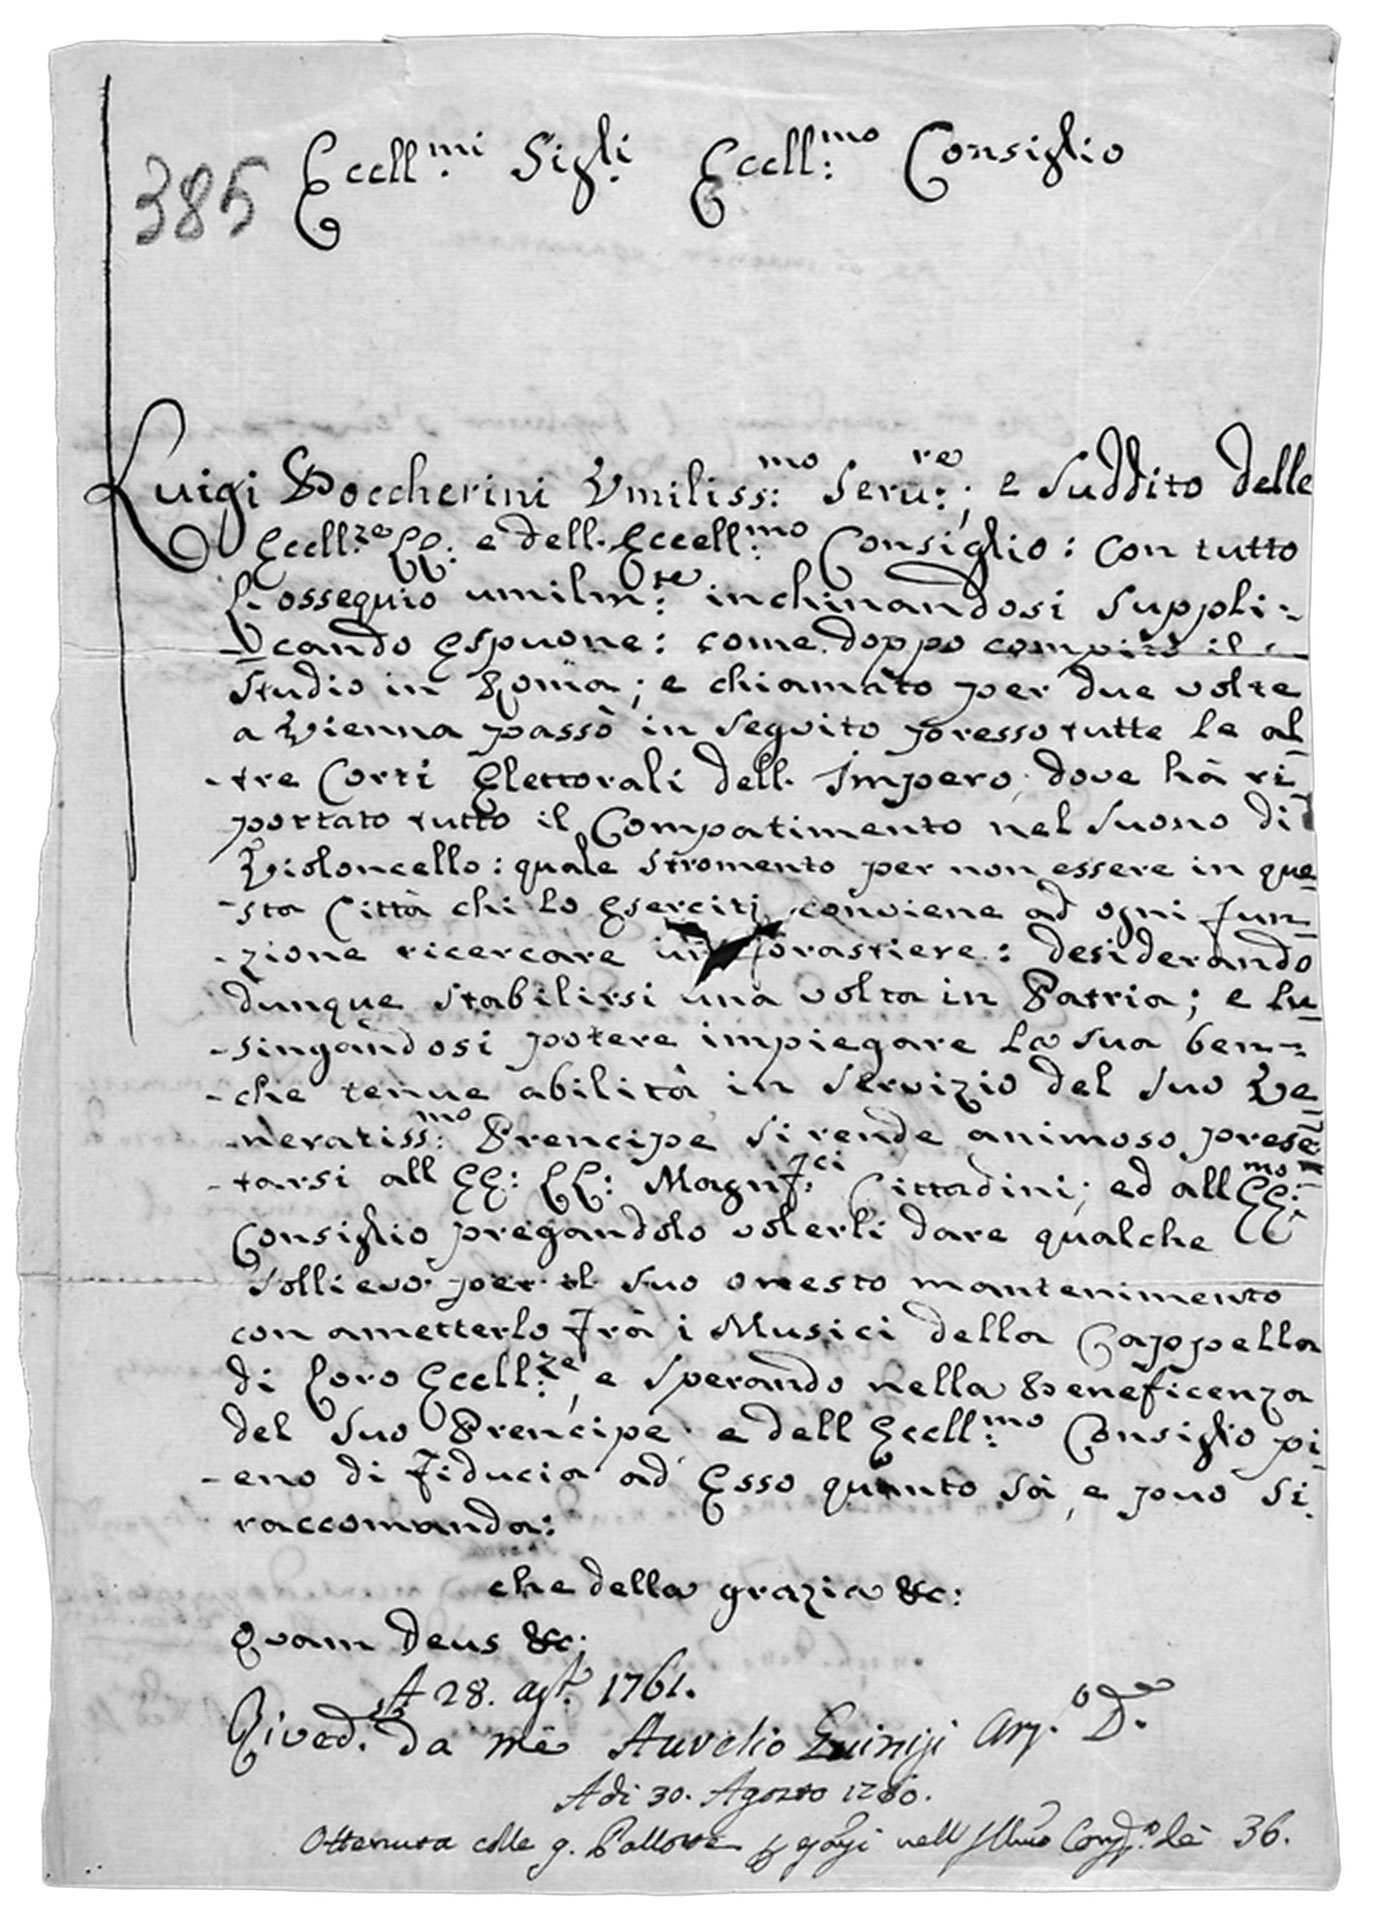 385
Eccell.mi Sig.ri Eccell:mo Consiglio
Luigi Boccherini Vmiliss:mo Seru:re, e Suddito delle
Eccell:ze LL: e dell. Eccell:mo Consiglio: con tutto
l'ossequio umilm:te inchinandosi suppli-
cando Espuone: come doppo compito il
studio in Roma; e chiamato per due volte
a Vienna passò in seguito presso tutte le al
-tre Corti Elettorali dell. Impero, dove hà ri
portato tutto il Compatimento nel suono di
Violoncello: quale stromento per non essere in que
-sta Città chi lo eserciti, conviene ad ogni fun
-zione ricercare un forastiere: desiderando
dunque stabilirsi una volta in Patria; e lu
-singandosi potere impiegare la sua ben-
-che tenue abilità in servizio del suo Ve
-neratiss:mo Prencipe si rende animoso prese
-tarsi all EE: LL: Magnf:ci Cittadini; ed all EE:mo
Consiglio pregandolo volerli dare qualche
sollievo per il suo onesto mantenimento
con ametterlo frà i Musici della Cappella
di Loro Eccell:ze, e sperando nella beneficenza
del suo Prencipe e dell Eccell:mo Consiglio pi
-eno di fiducia ad Esso quanto sà, e può si
raccomanda:
che della grazia &c:
Quam Deus &c:
A 28. agt. 1761.
Rived.ta da me Aurelio Guinigi
Adi 30. Agosto 1760.
Ottenuta colle Pallotte nell' de 36.